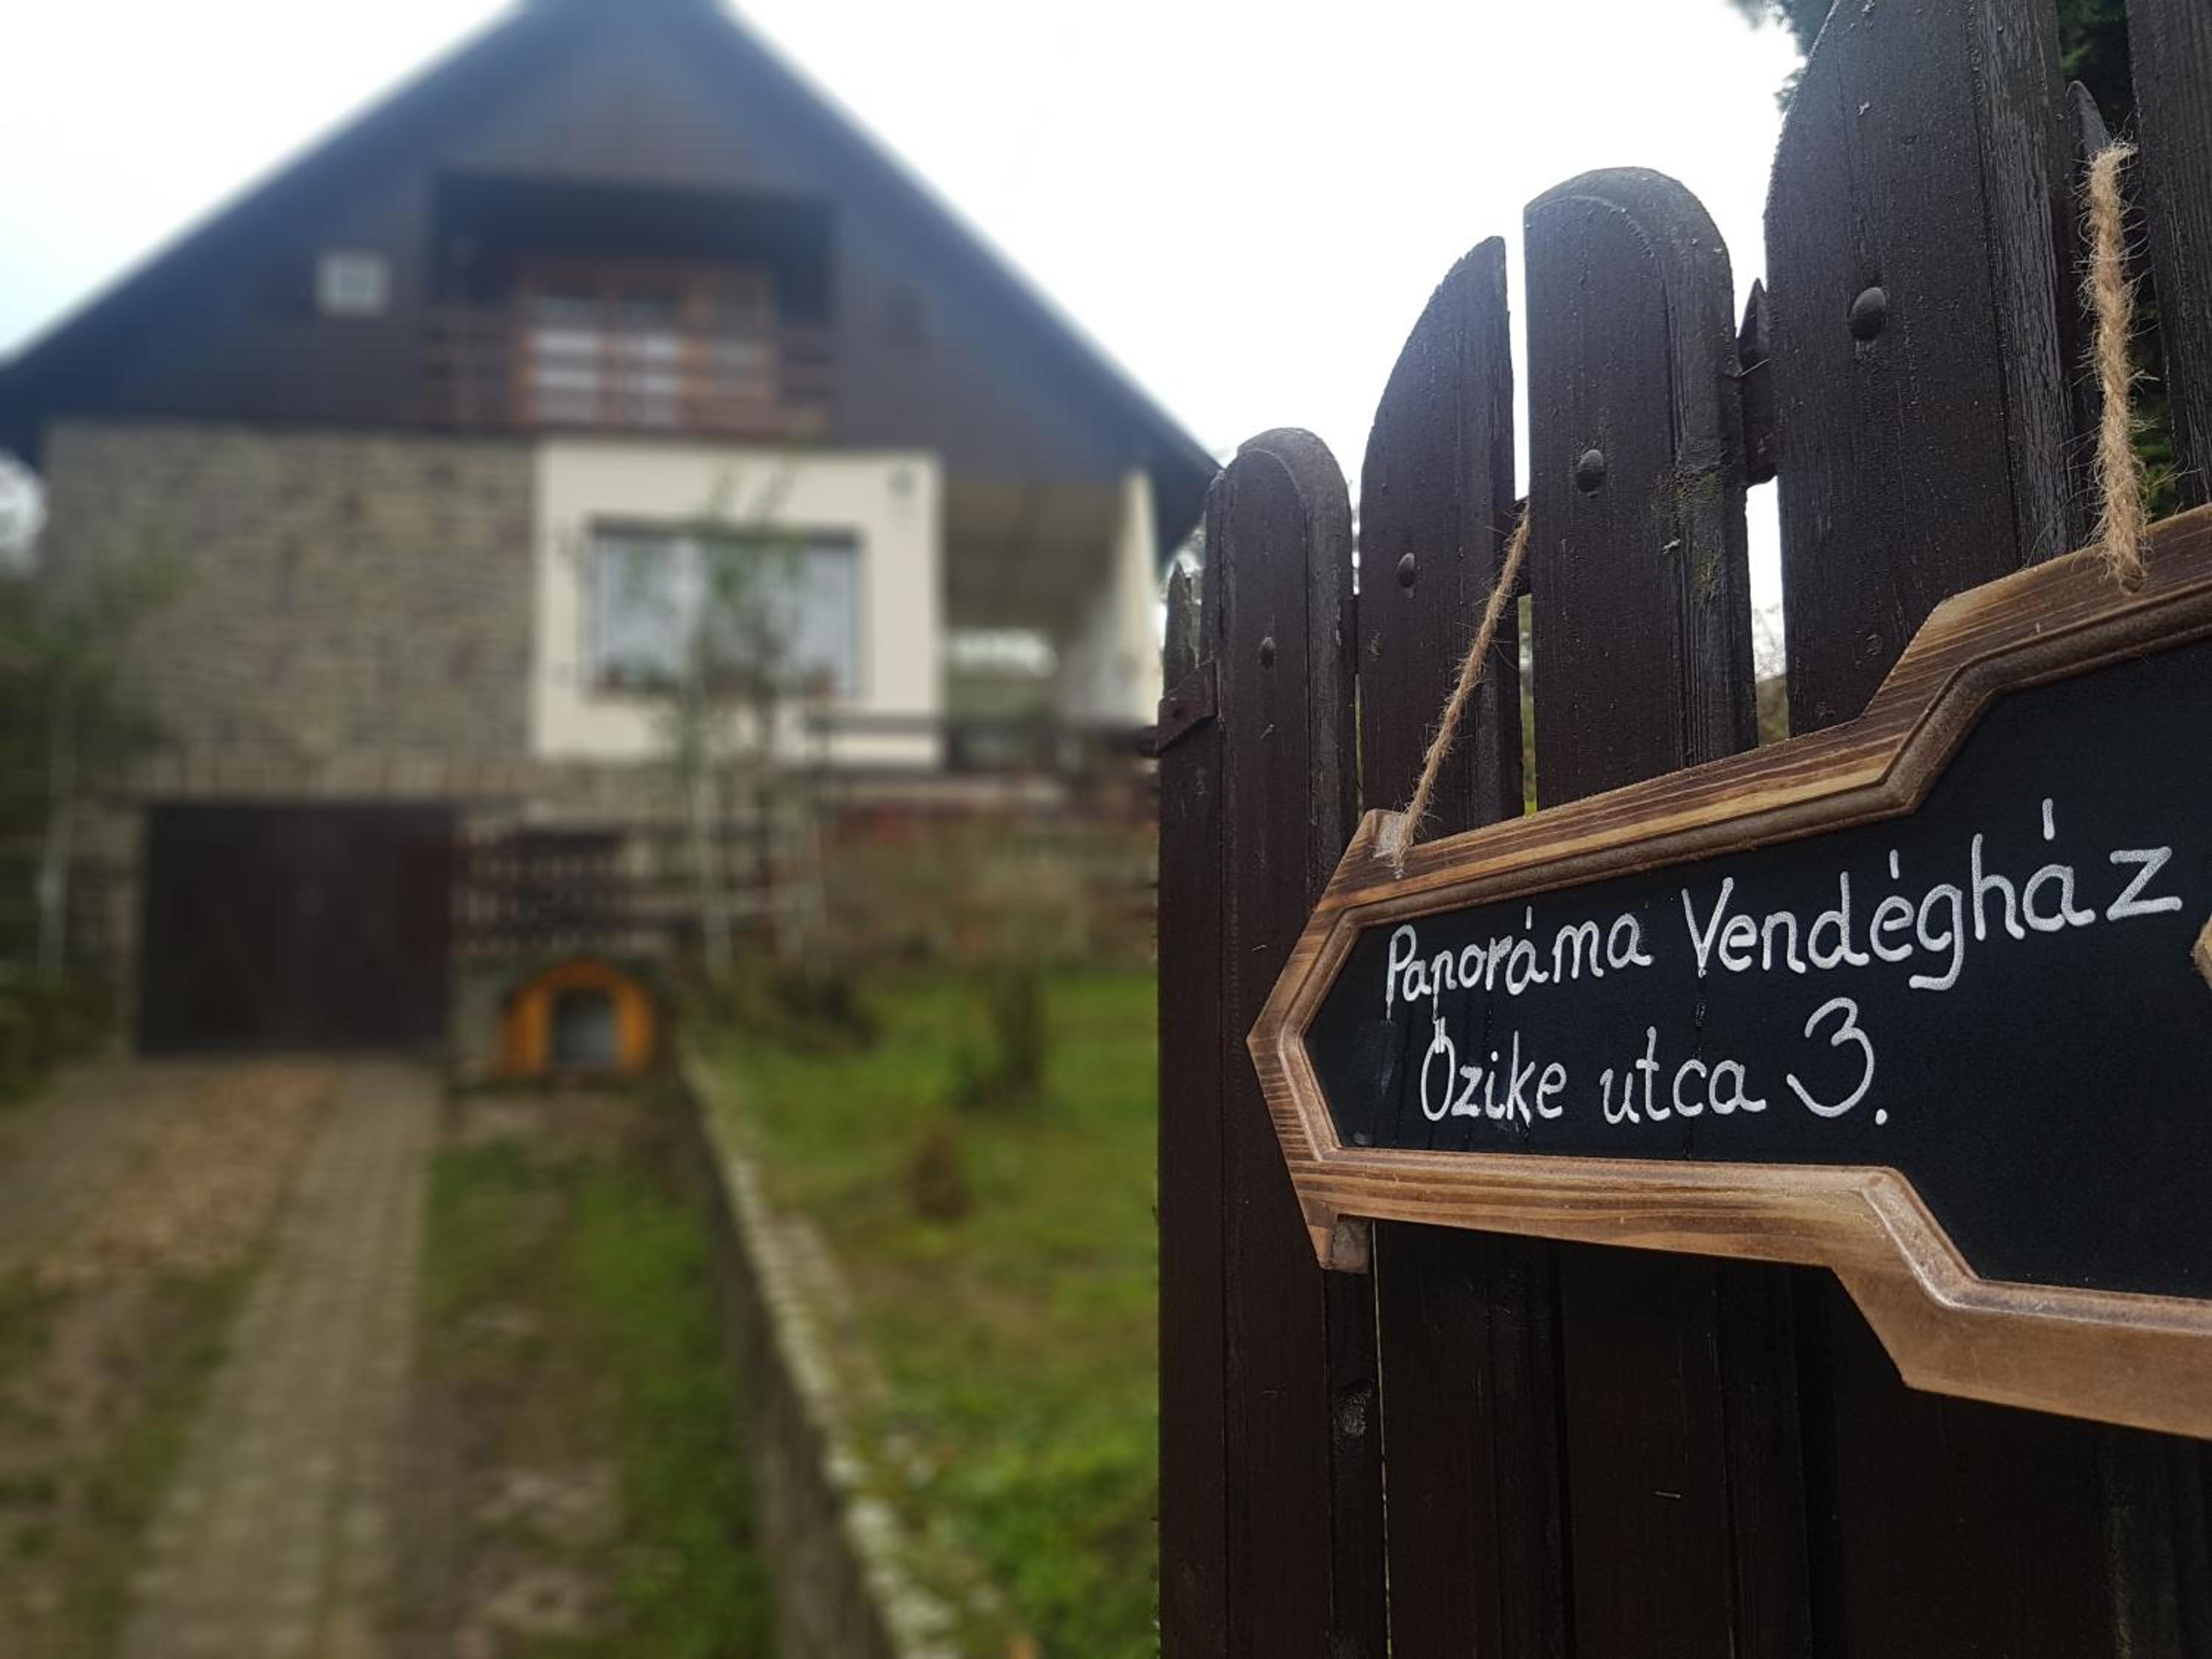 Panoráma Vendégház
Őzike utca 3.